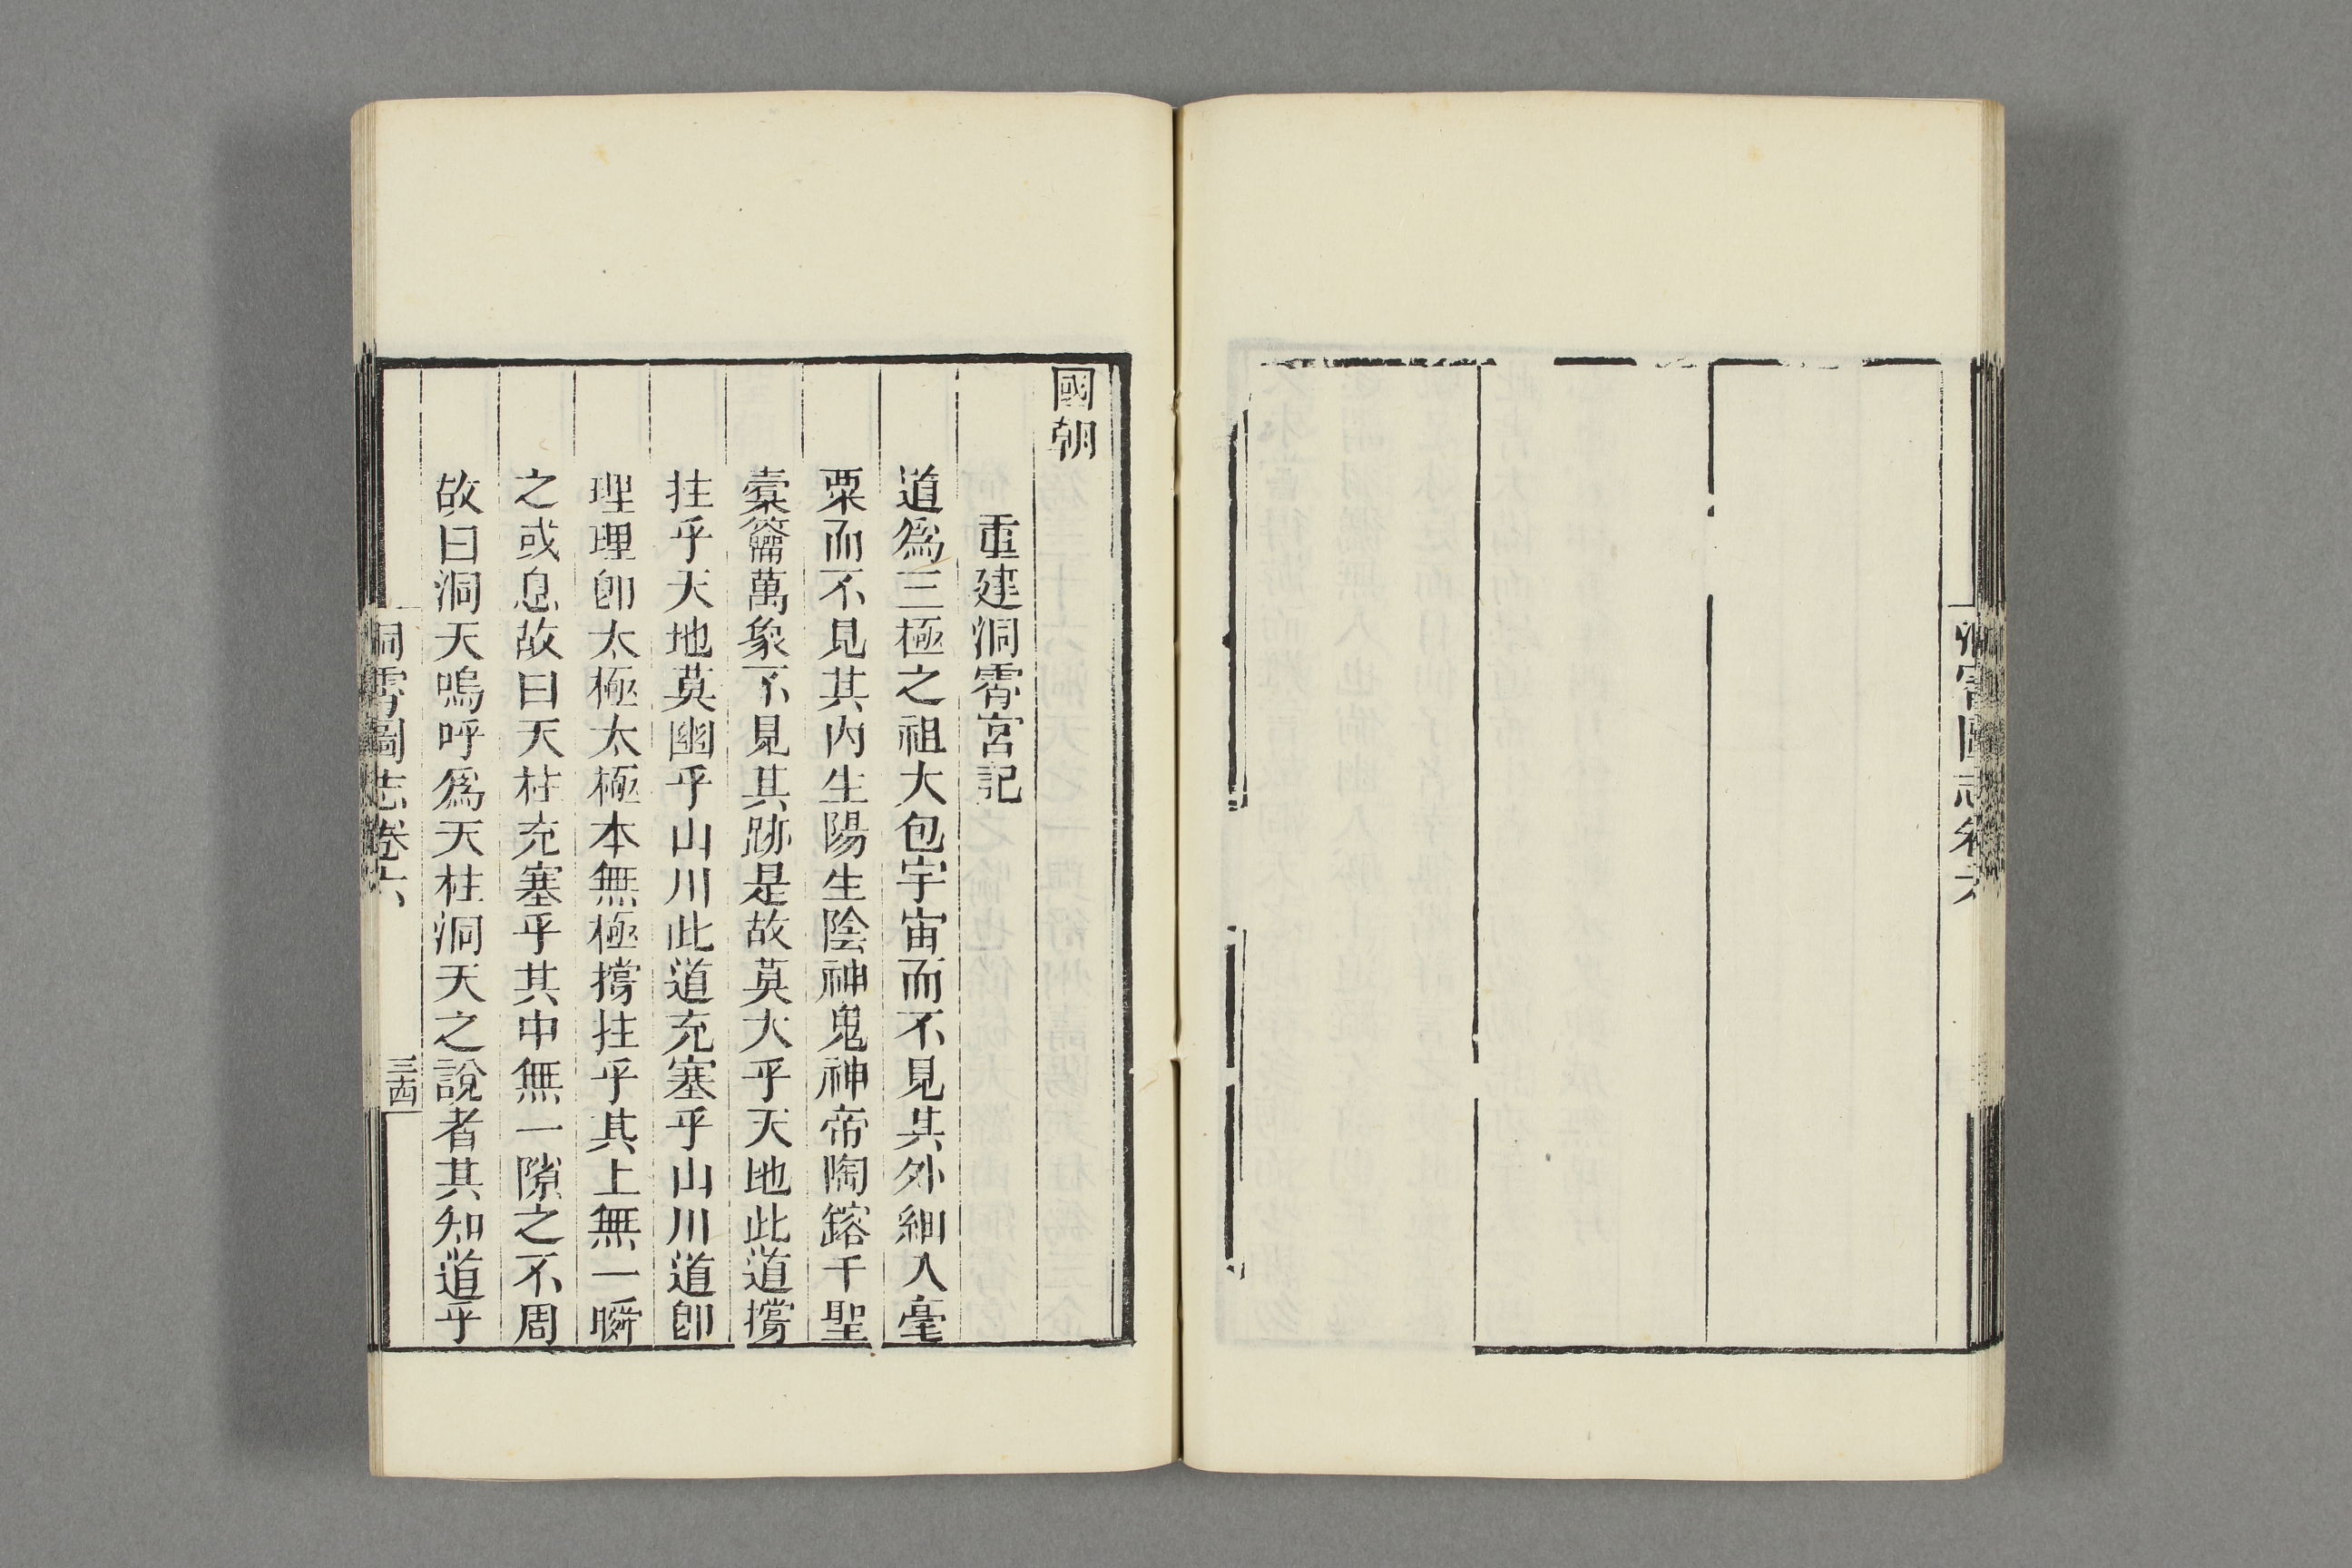 國朝
重建洞霄宮記
道爲三極之祖大包宇宙而不見其外細入毫
粟而不見其内生陽生陰神鬼神帝陶鎔千聖
橐籥萬象不見其跡是故莫大乎天地此道撐
拄乎天地莫幽乎山川此道充塞乎山川道卽
理理卽太極太極本無極撐拄乎其上無一瞬
之或息故曰天柱充塞乎其中無一隙之不周
故曰洞天嗚呼爲天柱洞天之說者其知道乎
洞霄圖志卷六
三四